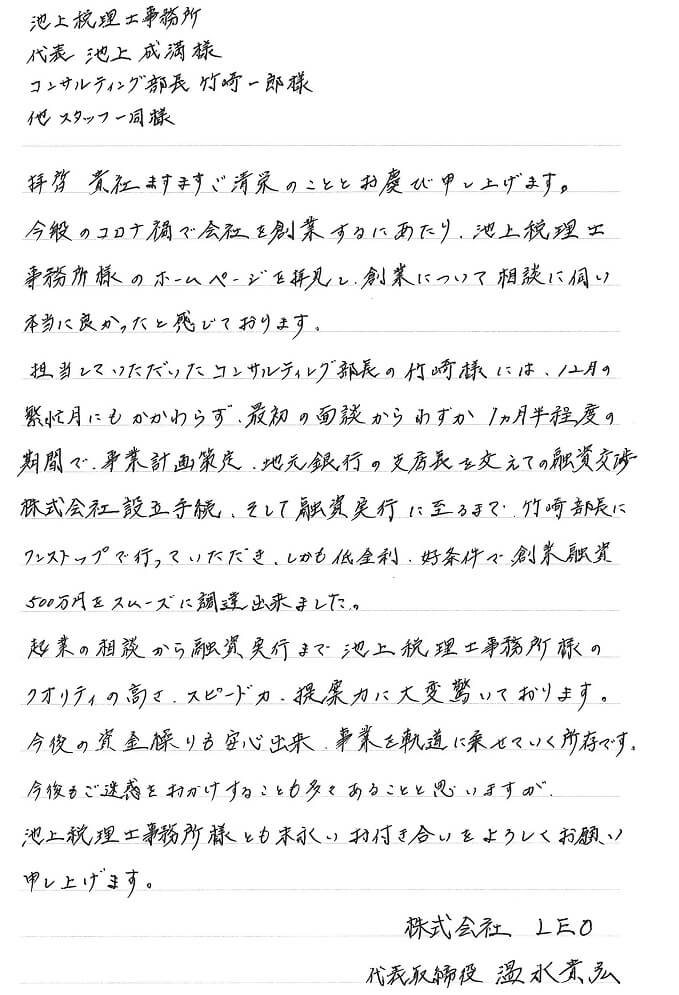 池上税理士事務所
代表 池上 成満様
コンサルティング部長 竹崎一郎様
他 スタッフ一同様
拝啓 貴社ますますご清栄のこととお慶び申し上げます。
今般のコロナ禍で会社を創業するにあたり、池上税理士
事務所様のホームページを拝見し、創業について相談に伺い
本当に良かったと感じております。
担当していただいたコンサルティング部長の竹崎様には、12月の
繁忙月にもかかわらず、最初の面談からわずか1ヵ月半程度の
期間で、事業計画策定、地元銀行の支店長を交えての融資交渉
株式会社設立手続、そして融資実行に至るまで、竹崎部長に
ワンストップで行っていただき、しかも低金利、好条件で創業融資
500万円をスムーズに調達出来ました。
起業の相談から融資実行まで池上税理士事務所様の
クオリティの高さ、スピード力、提案力に大変驚いております。
今後の資金繰りも安心出来、事業を軌道に乗せていく所存です。
今後もご迷惑をおかけすることも多々あることと思いますが、
池上税理士事務所様とも末永いお付き合いをよろしくお願い
申し上げます。
株式会社 LEO
代表取締役 温水貴弘